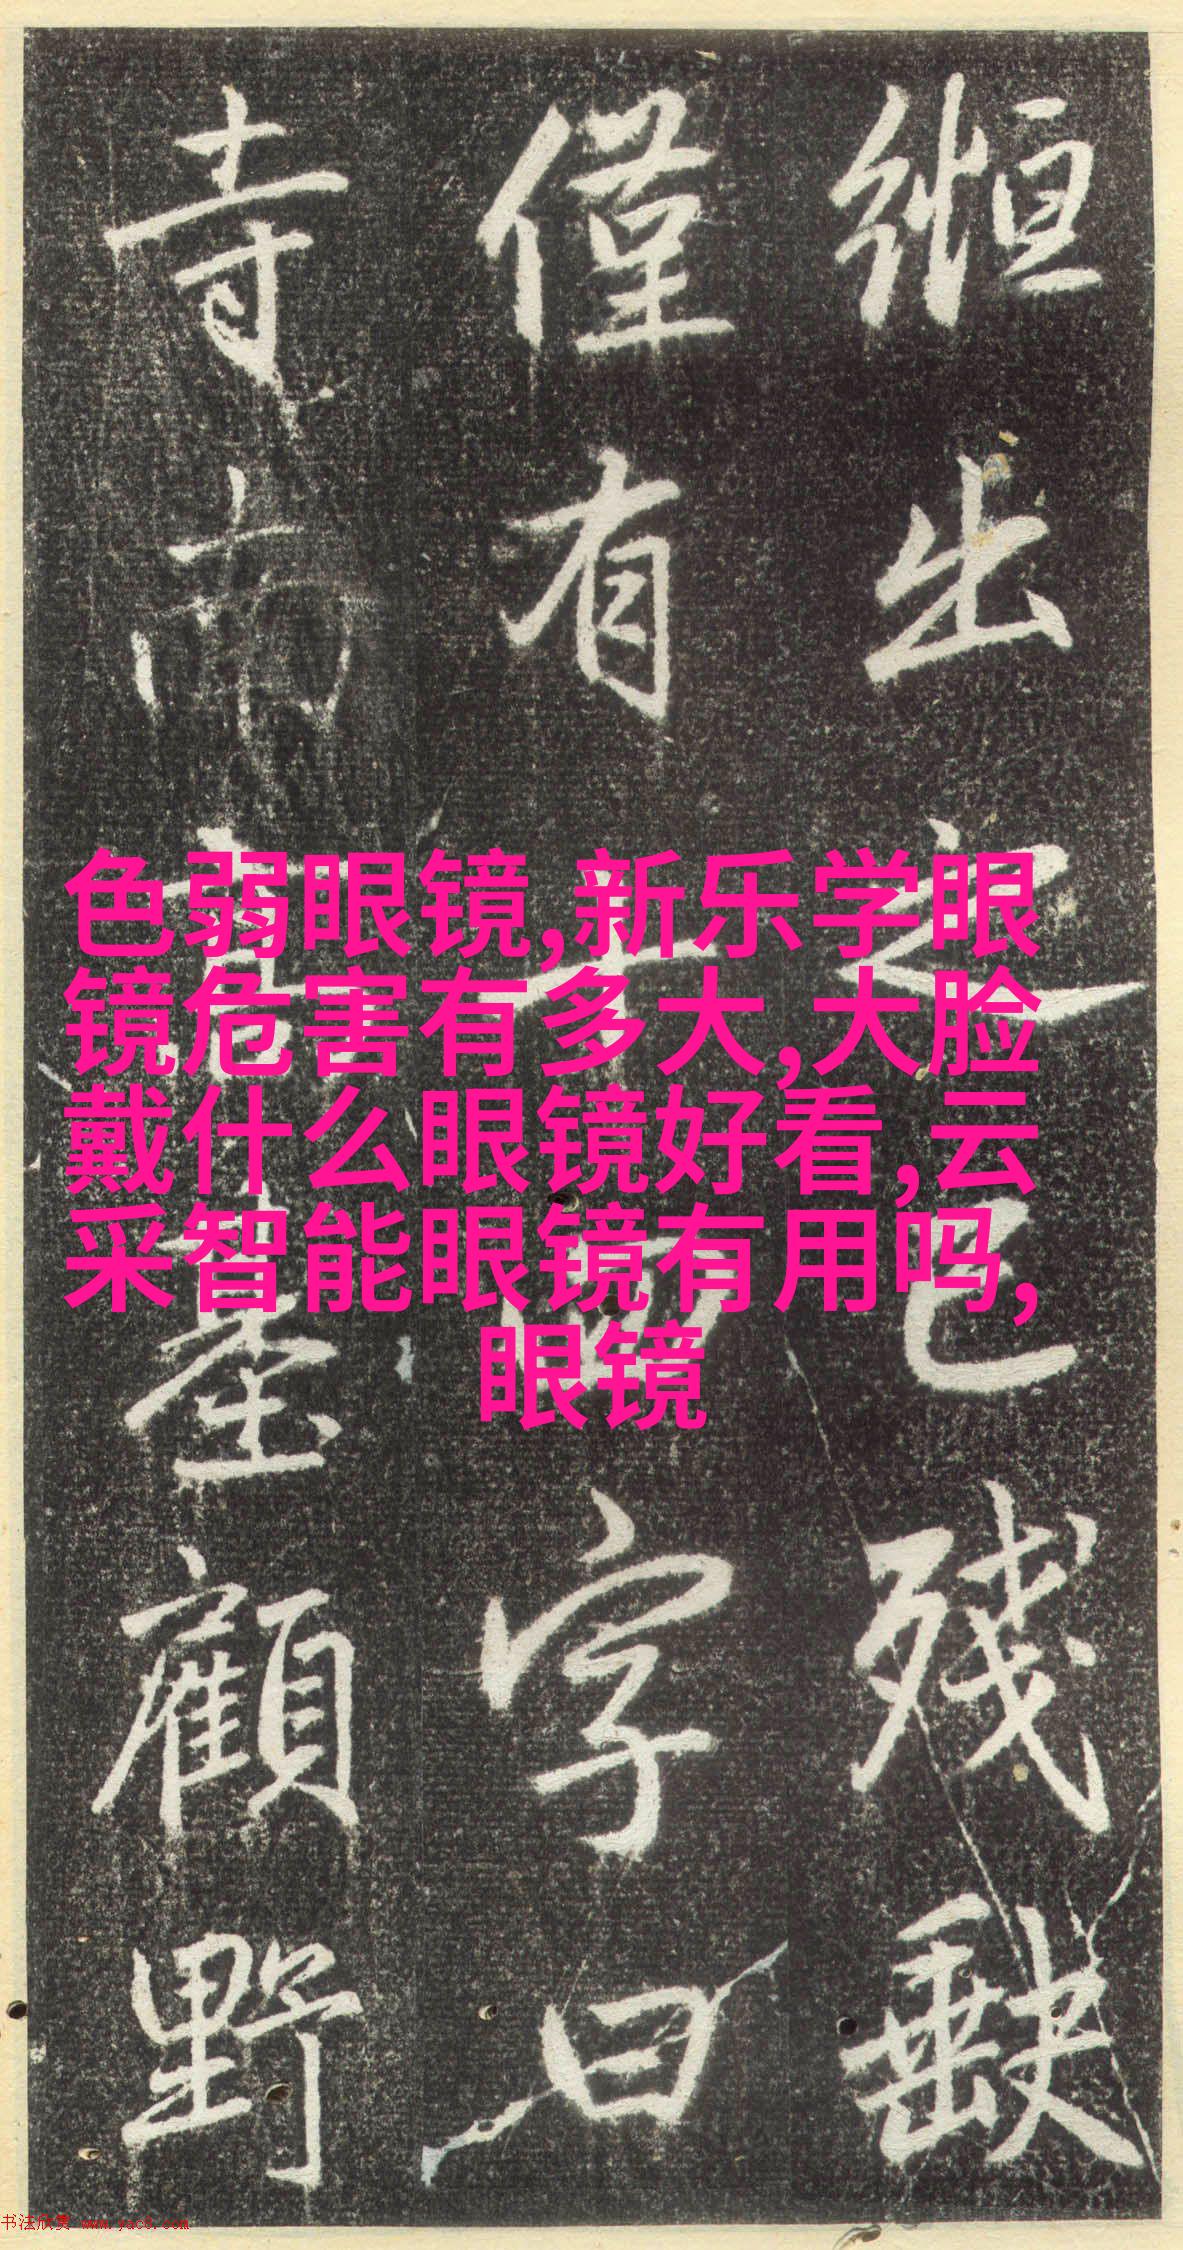 緪出之已残缺
僅有十四字曰
寺南高基顧野
色弱眼镜,新乐学眼
镜危害有多大,大脸
戴什么眼镜好看,云
采智能眼镜有用吗,
眼镜
书法欣赏 www.yac8.com